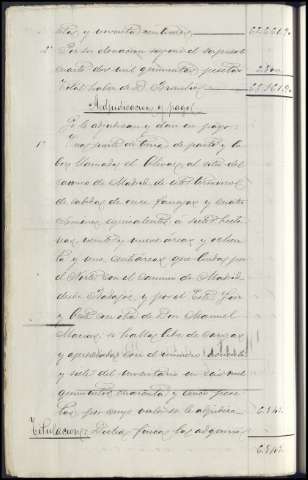 setas y noventa centimos 62.661.90
2º Por su donacion segun el supuesto
cuarto dos mil quinientas pesetas 2.500
Total haber de D. 65.161.90
Adjudicacion y pago
Se le adjudican y dan en pago:
1º Una suerte de tierra de puerto y la-
bor llamada el Olivar al sitio del
camino de Madrid de este termino
de cabida de once fanegas y cuatro
celemines equivalentes a siete hecta-
reas, veinte y nueve areas y ochen-
ta y una centiareas que linda por
el Norte con el camino de Madrid
desde Badajoz, y por el Este, Sur
y Oeste con otra de Don Manuel
Macias: se halla libre de cargas
y apreciada con el numero
y siete del inventario en seis mil
quinientas cuarenta y cinco pese-
tas por cuyo valor se le adjudica 6.545
Titulacion: Dicha finca las adquirio
6.545